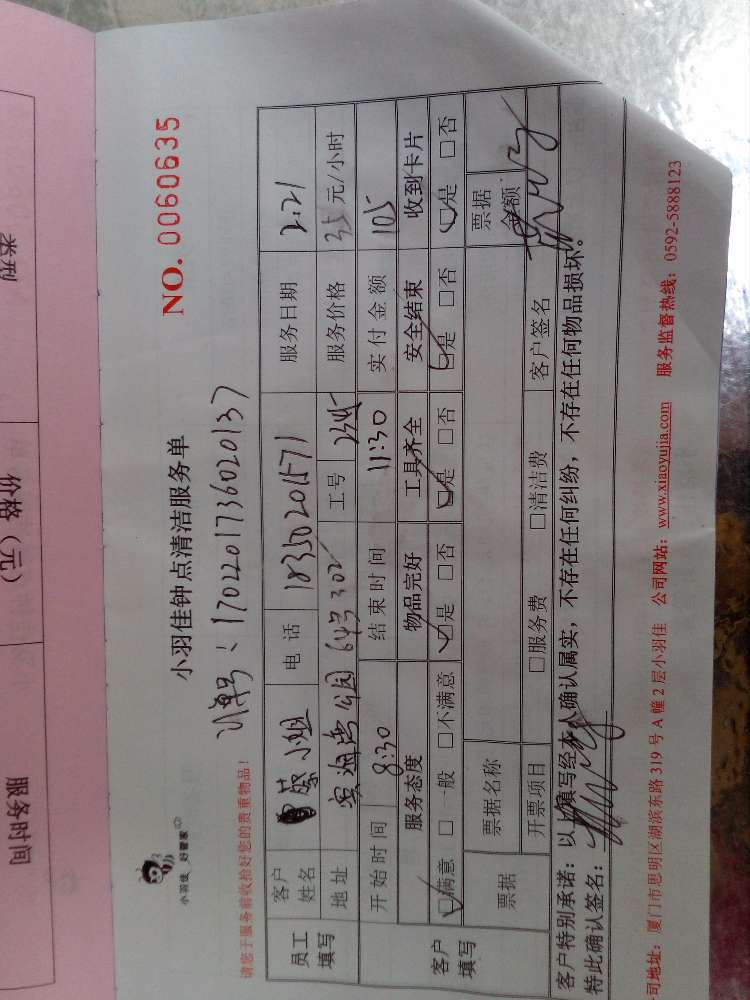 类型
价格（元）
服务时间
小羽佳 好管家
小羽佳钟点清洁服务单
NO. 0060635
订单号：1702201736020137
请您于服务前收拾好您的贵重物品！
员工填写 客户姓名 蔡小姐 电话 18350201571 服务日期 2.21
地址 64号302 工号 服务价格 35 元/小时
开始时间 8:30 结束时间 11:30 实付金额 105
客户填写 服务态度 物品完好 工具齐全 安全结束 收到卡片
☑满意 □一般 □不满意 ☑是 □否 ☑是 □否 ☑是 □否 ☑是 □否
票据 票据名称 票据金额
开票项目 □服务费 □清洁费 客户签名
客户特别承诺：以上填写经本人确认属实，不存在任何纠纷，不存在任何物品损坏。
特此确认签名：
司地址：厦门市思明区湖滨东路 319 号 A 幢 2 层小羽佳 公司网站：www.xiaoyujia.com 服务监督热线：0592-5888123